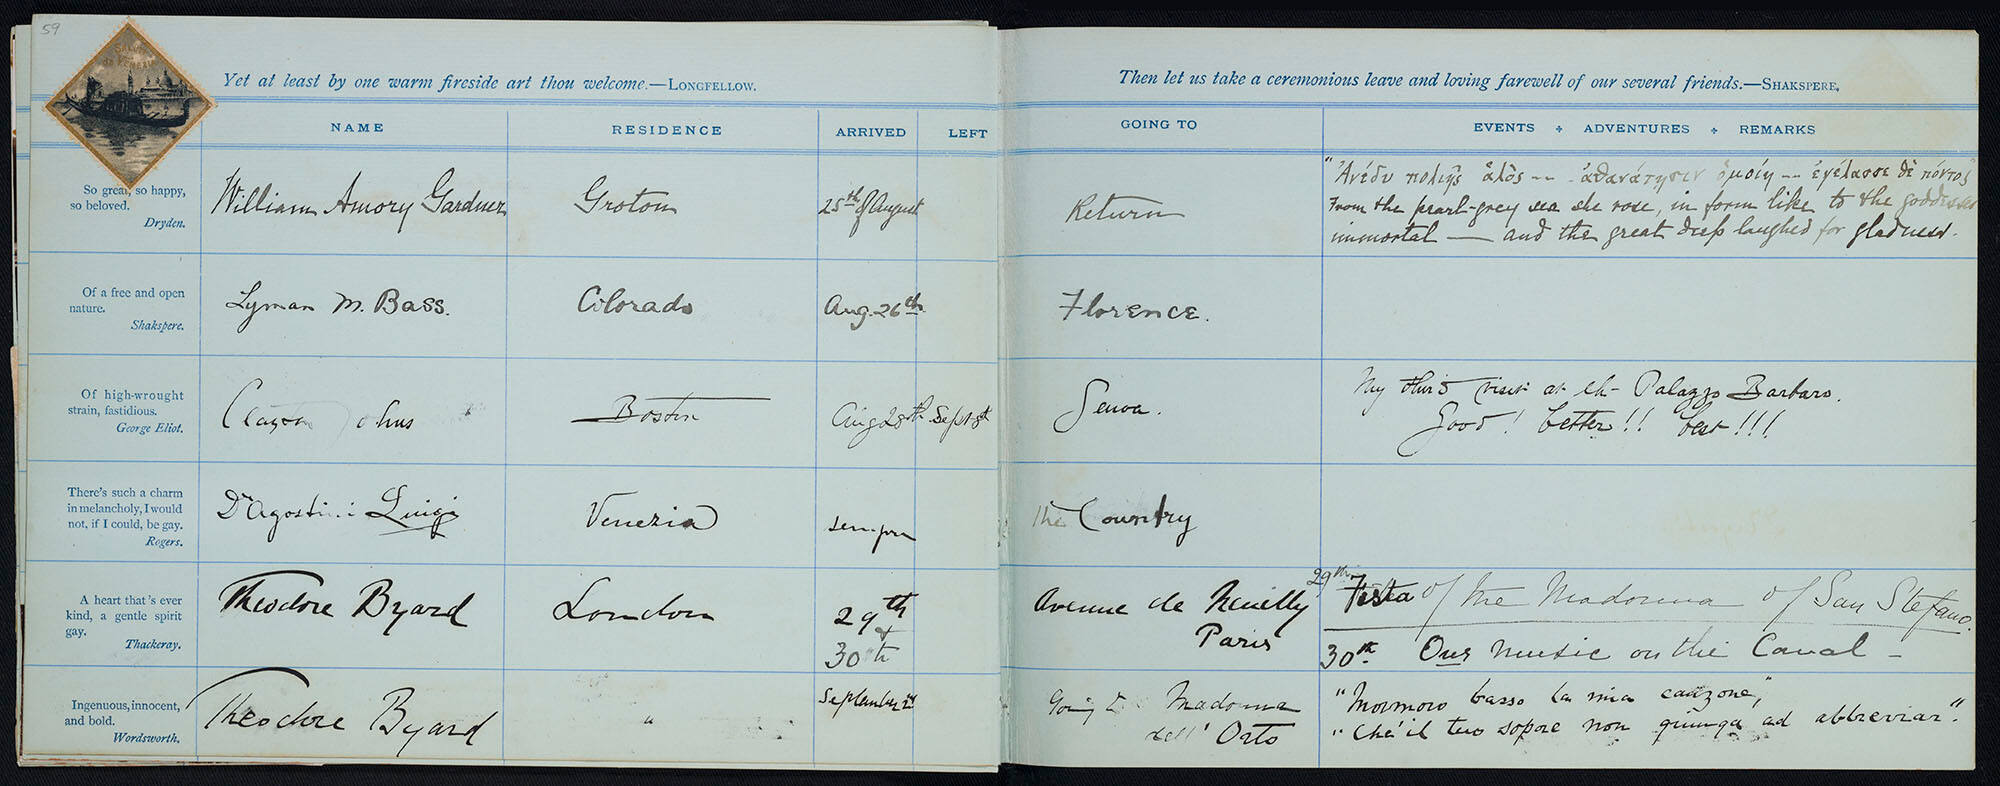 59
SALUTI
da VENEZIA
Yet at least by one warm fireside art thou welcome.—LONGFELLOW.
Then let us take a ceremonious leave and loving farewell of our several friends.—SHAKSPERE.
NAME RESIDENCE ARRIVED LEFT GOING TO EVENTS ADVENTURES REMARKS
So great, so happy,
so beloved.
Dryden.
William Amory Gardner Groton 25th of August Return
"Ἀνέδυ πολιῆς ἁλὸς -- ἀθανάτῃσιν ὁμοίη -- ἐγέλασσε δὲ πόντος"
From the pearl-grey sea she rose, in form like to the goddesses
immortal — and the great deep laughed for gladness.
Of a free and open
nature.
Shakspere.
Lyman M. Bass. Colorado Aug. 26th. Florence.
Of high-wrought
strain, fastidious.
George Eliot.
Clayton Johns Boston Aug 28th Sept 8th Genoa.
My third visit at the Palazzo Barbaro.
Good! better!! best!!!
There's such a charm
in melancholy, I would
not, if I could, be gay.
Rogers.
Dr Agostini Luigi Venezia sempre The Country
A heart that's ever
kind, a gentle spirit
gay.
Thackeray.
Theodore Byard London 29th
&
30th
Avenue de Neuilly
Paris
29th Festa of the Madonna of San Stefano.
30th. Our music on the Canal —
Ingenuous, innocent,
and bold.
Wordsworth.
Theodore Byard " September 2nd
Going to Madonna
dell' Orto
"Mormoro basso la mia canzone,"
"Chè il tuo sopore non giunga ad abbreviar."